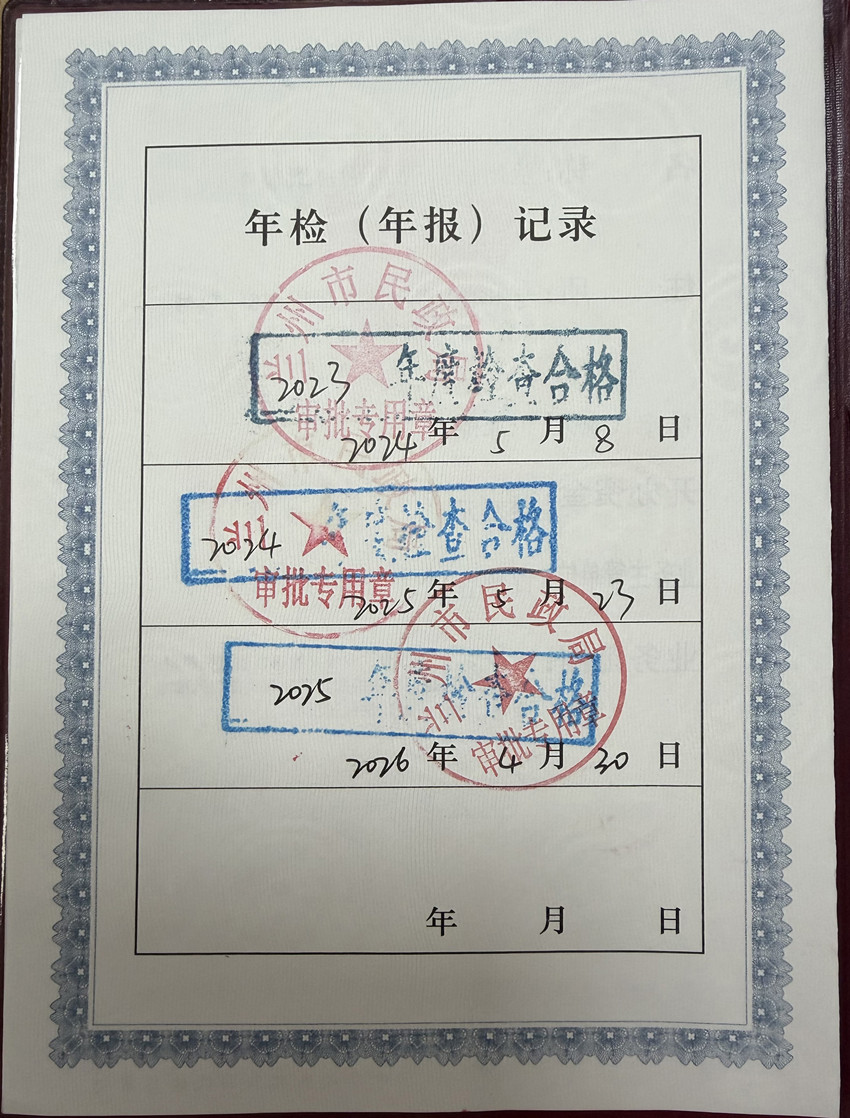 年检（年报）记录
兰州市民政局
2023 年度检查合格
审批专用章
2024 年 5 月 8 日
兰州市民政局
2024 年度检查合格
审批专用章
2025 年 5 月 23 日
兰州市民政局
2025 年度检查合格
审批专用章
2026 年 4 月 30 日
年 月 日